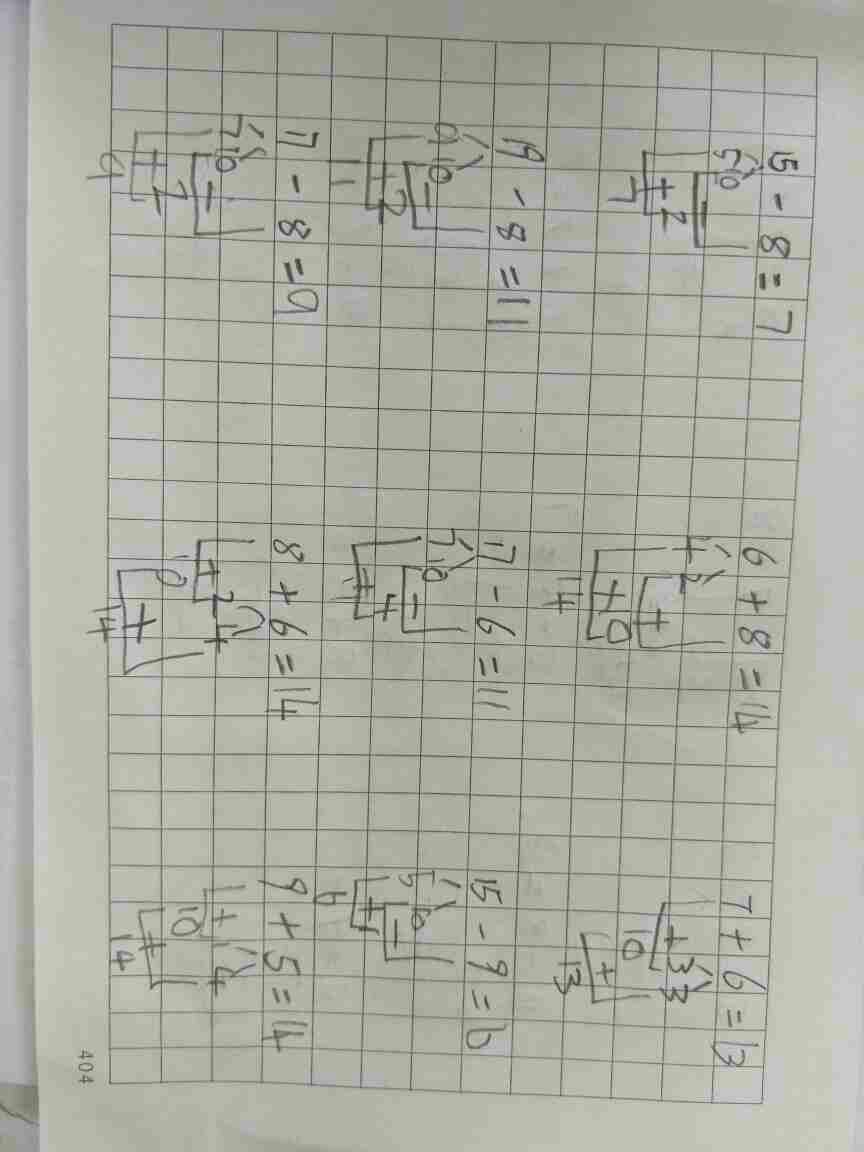 15 - 8 = 7 6 + 8 = 14 7 + 6 = 13
5 10 4 2 + 3 3
- + 10
+ 2 + 0 +
7 14 13
19 - 8 = 11 17 - 6 = 11 15 - 9 = 6
9 10 7 10 5 10
- - -
+ 2 + 4 + 1
11 11 6
17 - 8 = 9 8 + 6 = 14 9 + 5 = 14
7 10 + 2 4 + 1 4
- 10 10
+ 2 + +
9 14 14
404